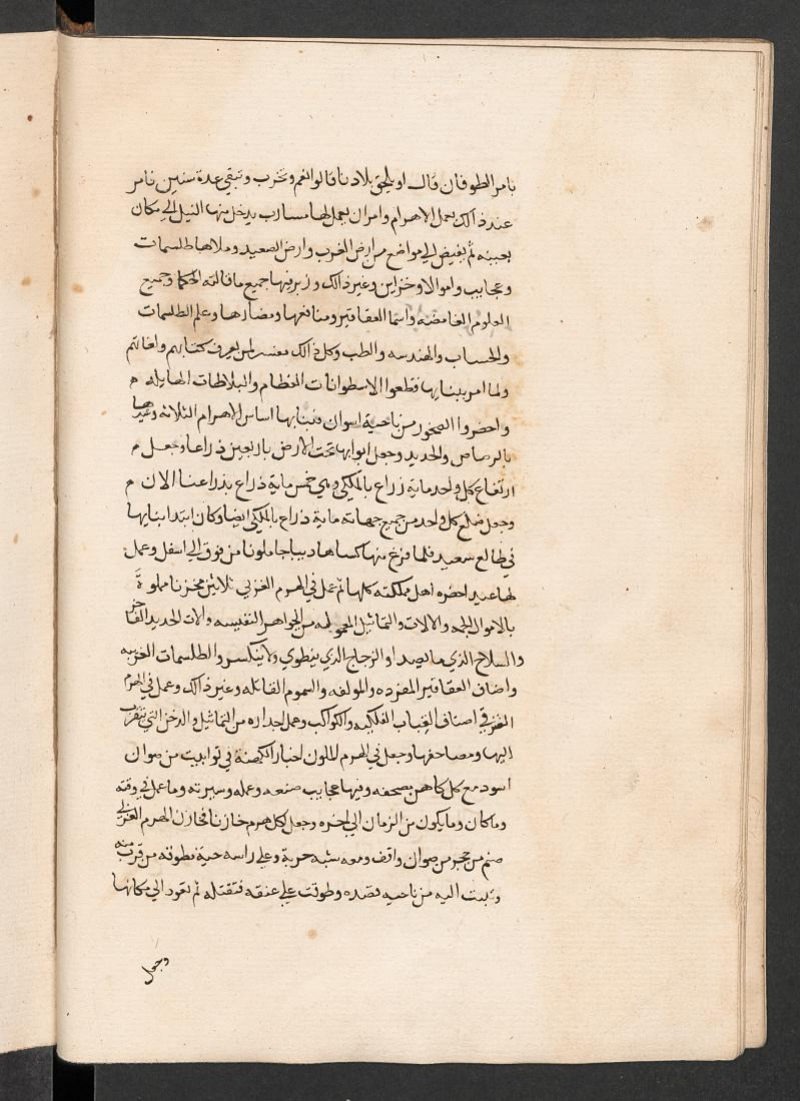 بامر الطوفان قال او يلحق بلادنا قالوا نعم وتخرب وتبقي عدة سنين فامر
عند ذالك بعمل الاهرام وامر ان يعمل لها مسارب يدخل منها النيل الي مكان
بعينه ثم يفيض الي مواضع من ارض الغرب وارض الصعيد وملاها طلسمات
وعجايب واموالا وخزاين وغير ذالك وزبر فيها جميع ما قالته الحكما وجميع
العلوم الغامضه واسما العقاقير ومنافعها ومضارها وعلم الطلسمات
والحساب والهندسه والطب وكل ذالك مفسر لمن يعرف كتابهم ولغاتهم
ولما امر ببنايها قطعوا الاسطوانات العظام والبلاطات الهايله م
واحضروا الصخور من ناحية اسوان فبنا بها اساس الاهرام الثلاثه وغيرها
بالرصاص والحديد وجعل ابوابها تحت الارض باربعين ذراعا وجعل م
ارتفاع كل واحد ماية زراع بالملكي وهي خمس ماية ذراع بذراعنا الان م
وجعل ضلع كل واحد من جميع جهاته ماية ذراع بالملكي ايضا وكان ابتدا بنايها
في طالع سعيد فلما فرغ منها كساها ديباجا ملونا من فوق الي اسفل وعمل
لها عيد احضره اهل مملكته كلها ثم عمل في الهرم الغربي ثلاثين مخزنا مملوة
بالاموال الجمه والالات والتماثيل المعموله من الجواهر النفيسه والات الحديد الفاخر
والسلاح الذي ما يصدا والزجاج الذي ينطوي ولا ينكسر والطلسمات الغريبه
واصناف العقاقير المفرده والمولفه والسموم القاتله وغير ذالك وعمل في الهرم
الشرقي اصناف القباب الفلكيه والكواكب وعمل اجداده من التماثيل والدخن التي تتقرب
اليها ومصاحفها وجعل في الهرم الملون اخبار الكهنة في توابيت من صوان
اسود مع كل كاهن مصحفه وفيها عجايب صنعه وعمله وسيرته وما عمل في وقته
وما كان وما يكون من الزمان الي اخره وجعل لكل هرم خازنا فخازن الهرم الغربي
صنم من حجر من صوان واقف ومعه شبه حربة وعلي راسه حية مطوقه من قرب منه
وثبت اليه من ناحيه قصده وطوقت علي عنقه فتقتله ثم تعود الي مكانها
وجعل